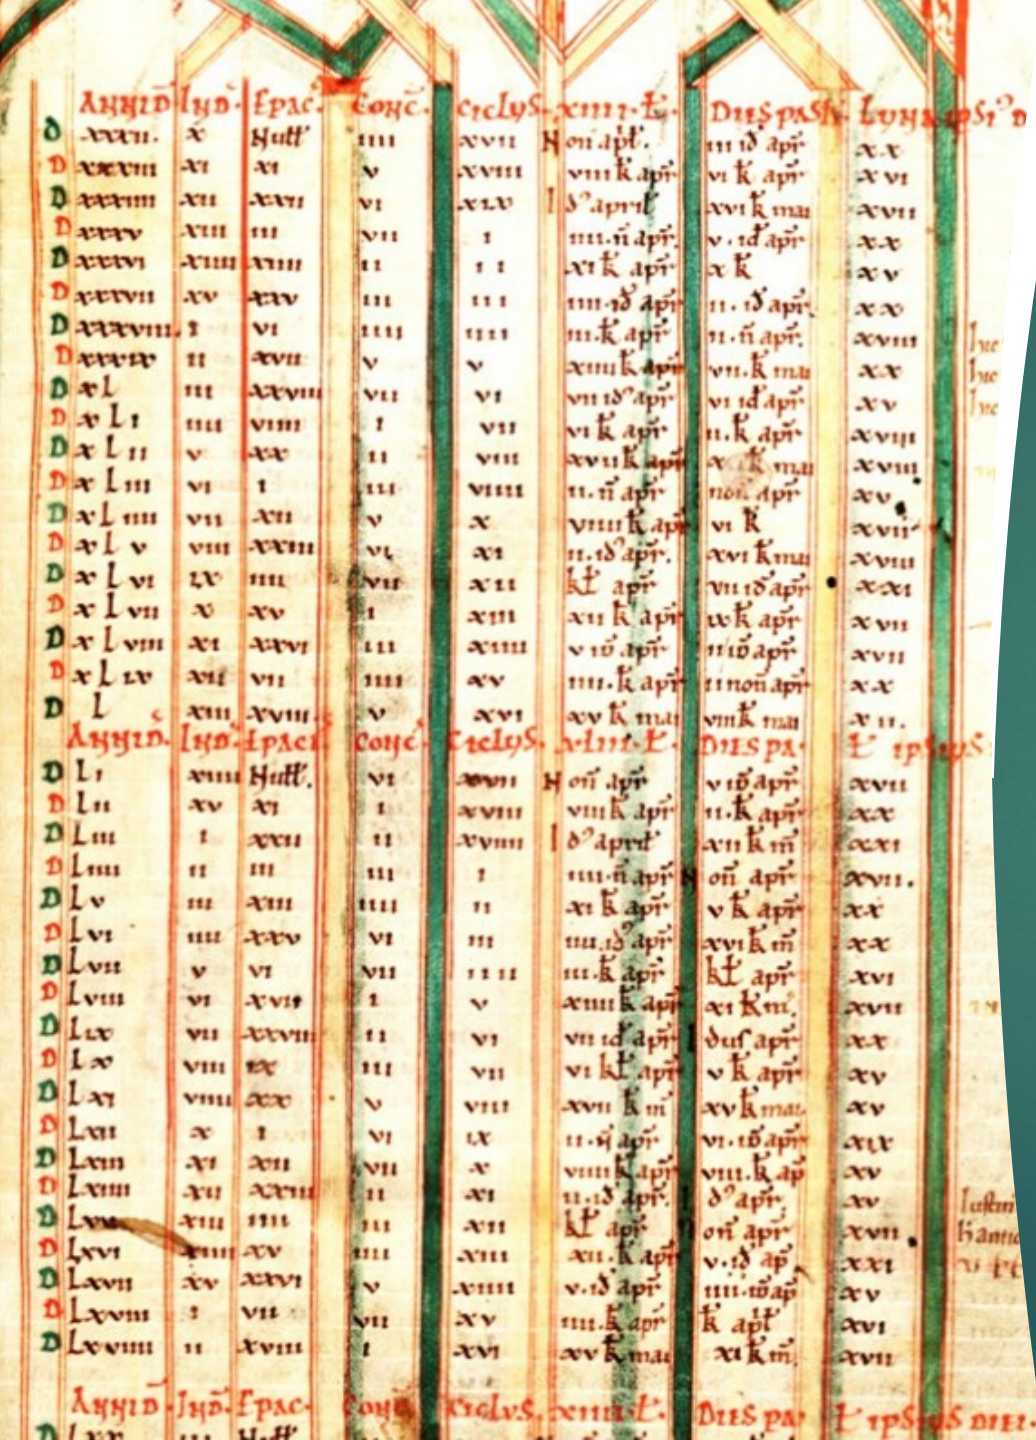 ANNI D IND EPAC CONC CICLVS XIIII L DIES PASH LVNA IPSI D
D xxxii. x Null iiii xvii Non apl. iii id apr xx
D xxxiii xi xi v xviii viii k apr vi k apr xvi
D xxxiiii xii xxii vi xix Id april xvi k mai xvii
D xxxv xiii iii vii i iiii n apr. v id apr xx
D xxxvi xiiii xiiii ii ii xi k apr x k xv
D xxxvii xv xxv iii iii iiii id apr ii id apr xx
D xxxviii i vi iiii iiii iii k apr ii n apr. xviii hic
D xxxix ii xvii v v xiiii k apr vii k mai xx hic
D xL iii xxviii vii vi vii id apr vi id apr xv hic
D xLi iiii viiii i vii vi k apr ii k apr xviii
D xLii v xx ii viii xvii k apr k mai xviii
D xLiii vi i iii viiii ii n apr non apr xv
D xLiiii vii xii v x viiii k apr vi k xvii
D xLv viii xxiii vi xi ii id apr. xvi k mai xviii
D xLvi ix iiii vii xii kl apr vii id apr xxi
D xLvii x xv i xiii xii k apr ix k apr xvii
D xLviii xi xxvi iii xiiii v id apr ii id apr xvii
D xLix xii vii iiii xv iiii k apr ii non apr xx
D L xiii xviii v xvi xv k mai viii k mai xii.
ANNI D IND EPACT CONC CICLVS XIIII L DIES PA L IPSIVS
D Li xiiii Null. vi xvii Non apr v id apr xvii
D Lii xv xi i xviii viii k apr ii k apr xx
D Liii i xxii ii xviiii Id april xii k m xxi
D Liiii ii iii iii i iiii n apr Non apr xvii.
D Lv iii xiiii iiii ii xi k apr v k apr xx
D Lvi iiii xxv vi iii iiii id apr xvi k m xx
D Lvii v vi vii iiii iii k apr kl apr xvi
D Lviii vi xvii i v xiiii k apr xi k m. xvii
D Lix vii xxviii ii vi vii id apr Idus apr xx
D Lx viii ix iii vii vi kl apr v k apr xv
D Lxi viiii xx v viii xvii k m xv k mai xv
D Lxii x i vi ix ii n apr vi id apr xix
D Lxiii xi xii vii x viiii k apr viii k ap xv
D Lxiiii xii xxiii ii xi ii id apr. Id apr xv
D Lxv xiii iiii iii xii kl apr Non apr xvii
D Lxvi xiiii xv iiii xiii xii k apr v id ap xxi
D Lxvii xv xxvi v xiiii v id apr iiii id apr xv
D Lxviii i vii vii xv iiii k apr k apl xvi
D Lxviiii ii xviii i xvi xv k mai xi k m xvii
ANNI D IND EPAC CONC CICLVS XIIII L DIES PA L IPSIVS DIEI
D Lxx iii Null